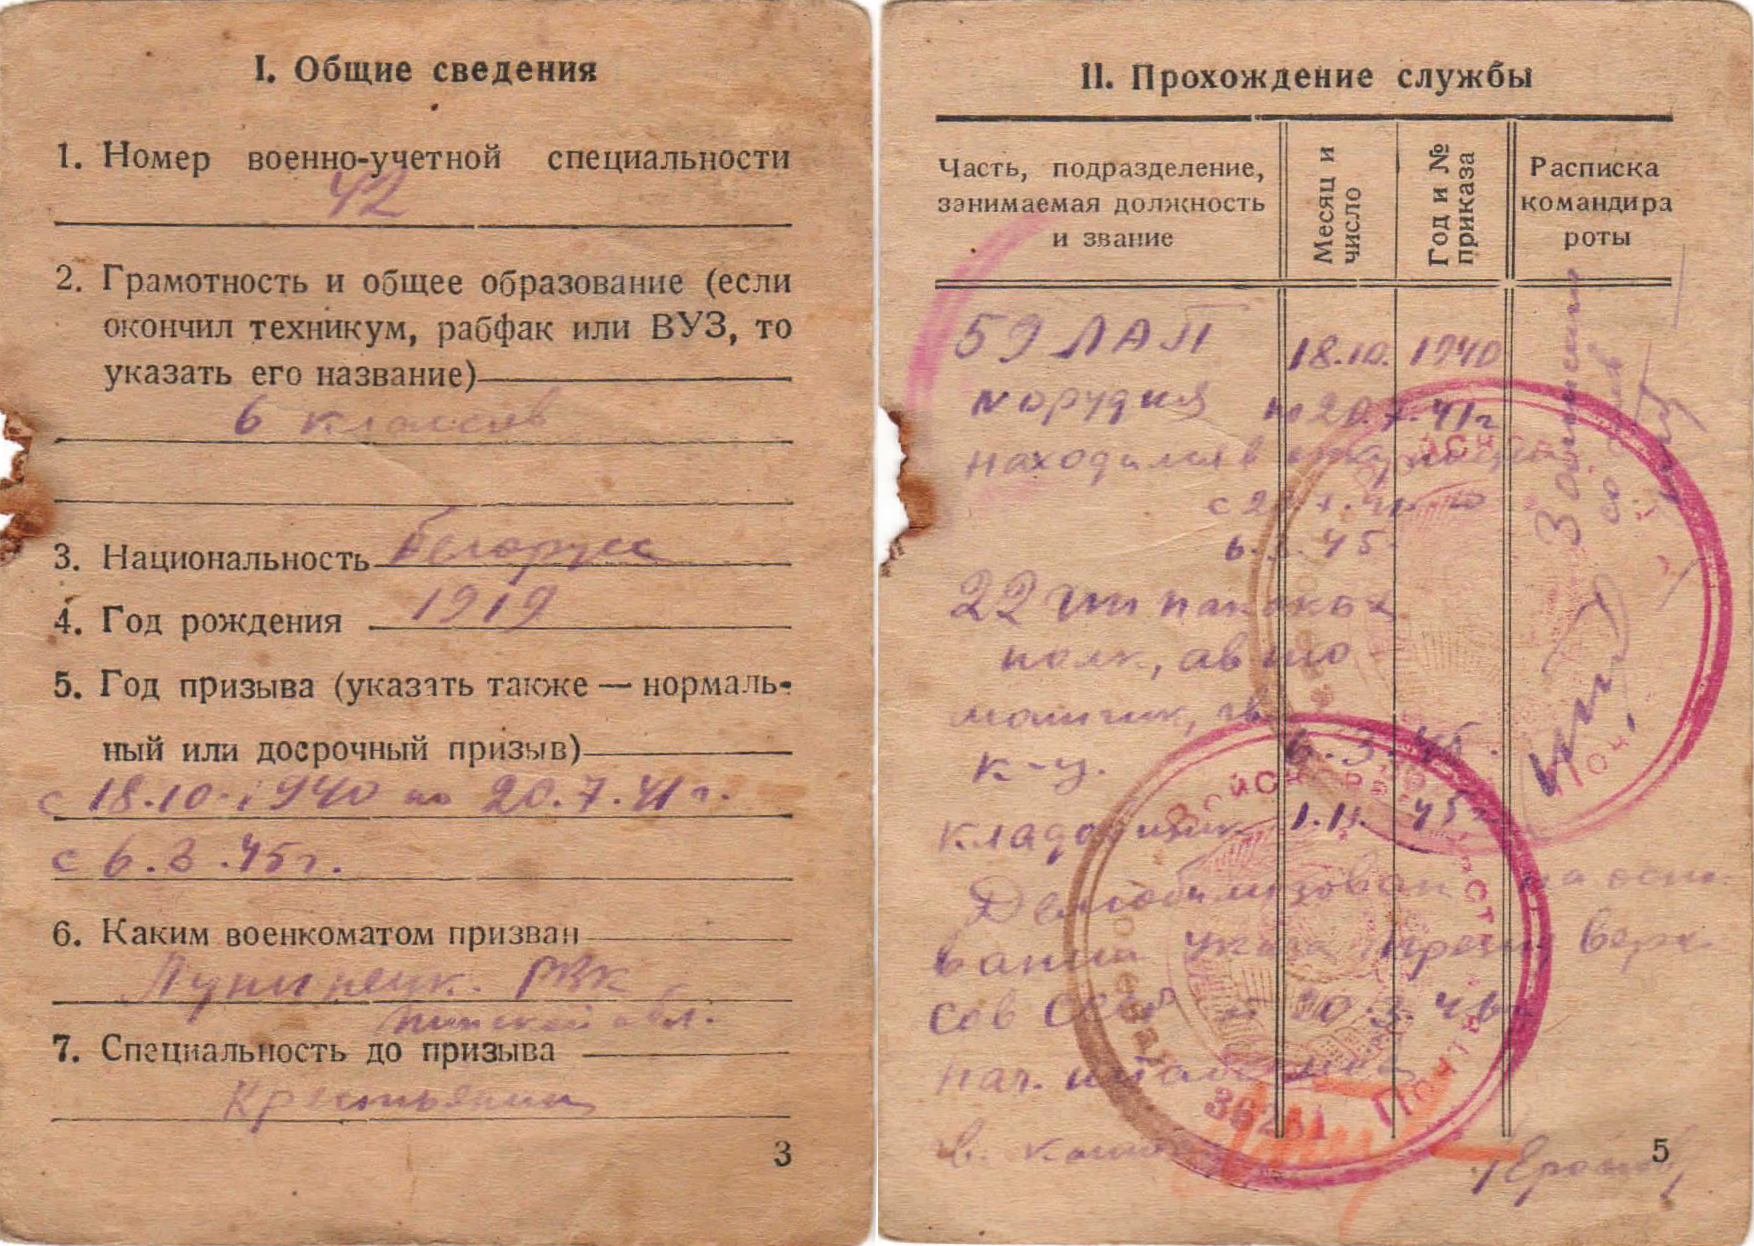 I. Общие сведения
1. Номер военно-учетной специальности
42
2. Грамотность и общее образование (если
окончил техникум, рабфак или ВУЗ, то
указать его название)
6 классов
3. Национальность белорусс
4. Год рождения 1919
5. Год призыва (указать также — нормаль-
ный или досрочный призыв)
с 18.10.1940 по 20.7.41г.
с 6.3.45г.
6. Каким военкоматом призван
Лунинецк. РВК
Пинской обл.
7. Специальность до призыва
Крестьянин
3
II. Прохождение службы
Часть, подразделение,
занимаемая должность
и звание
Месяц и
число
Год и №
приказа
Расписка
командира
роты
59 ЛАП 18.10. 1940
орудия по 20.7.41г
находился в
6.3.45
22
полк, авто
матчик, гв.
к-ц. 6.3.45.
кладовщик 1.11. 45г
Демобилизован на осно-
вании Указа През. Верх.
Сов СССР 20.3.46г
нач. штаба
гв. капит
Записан
со слов
36281
Почта
5